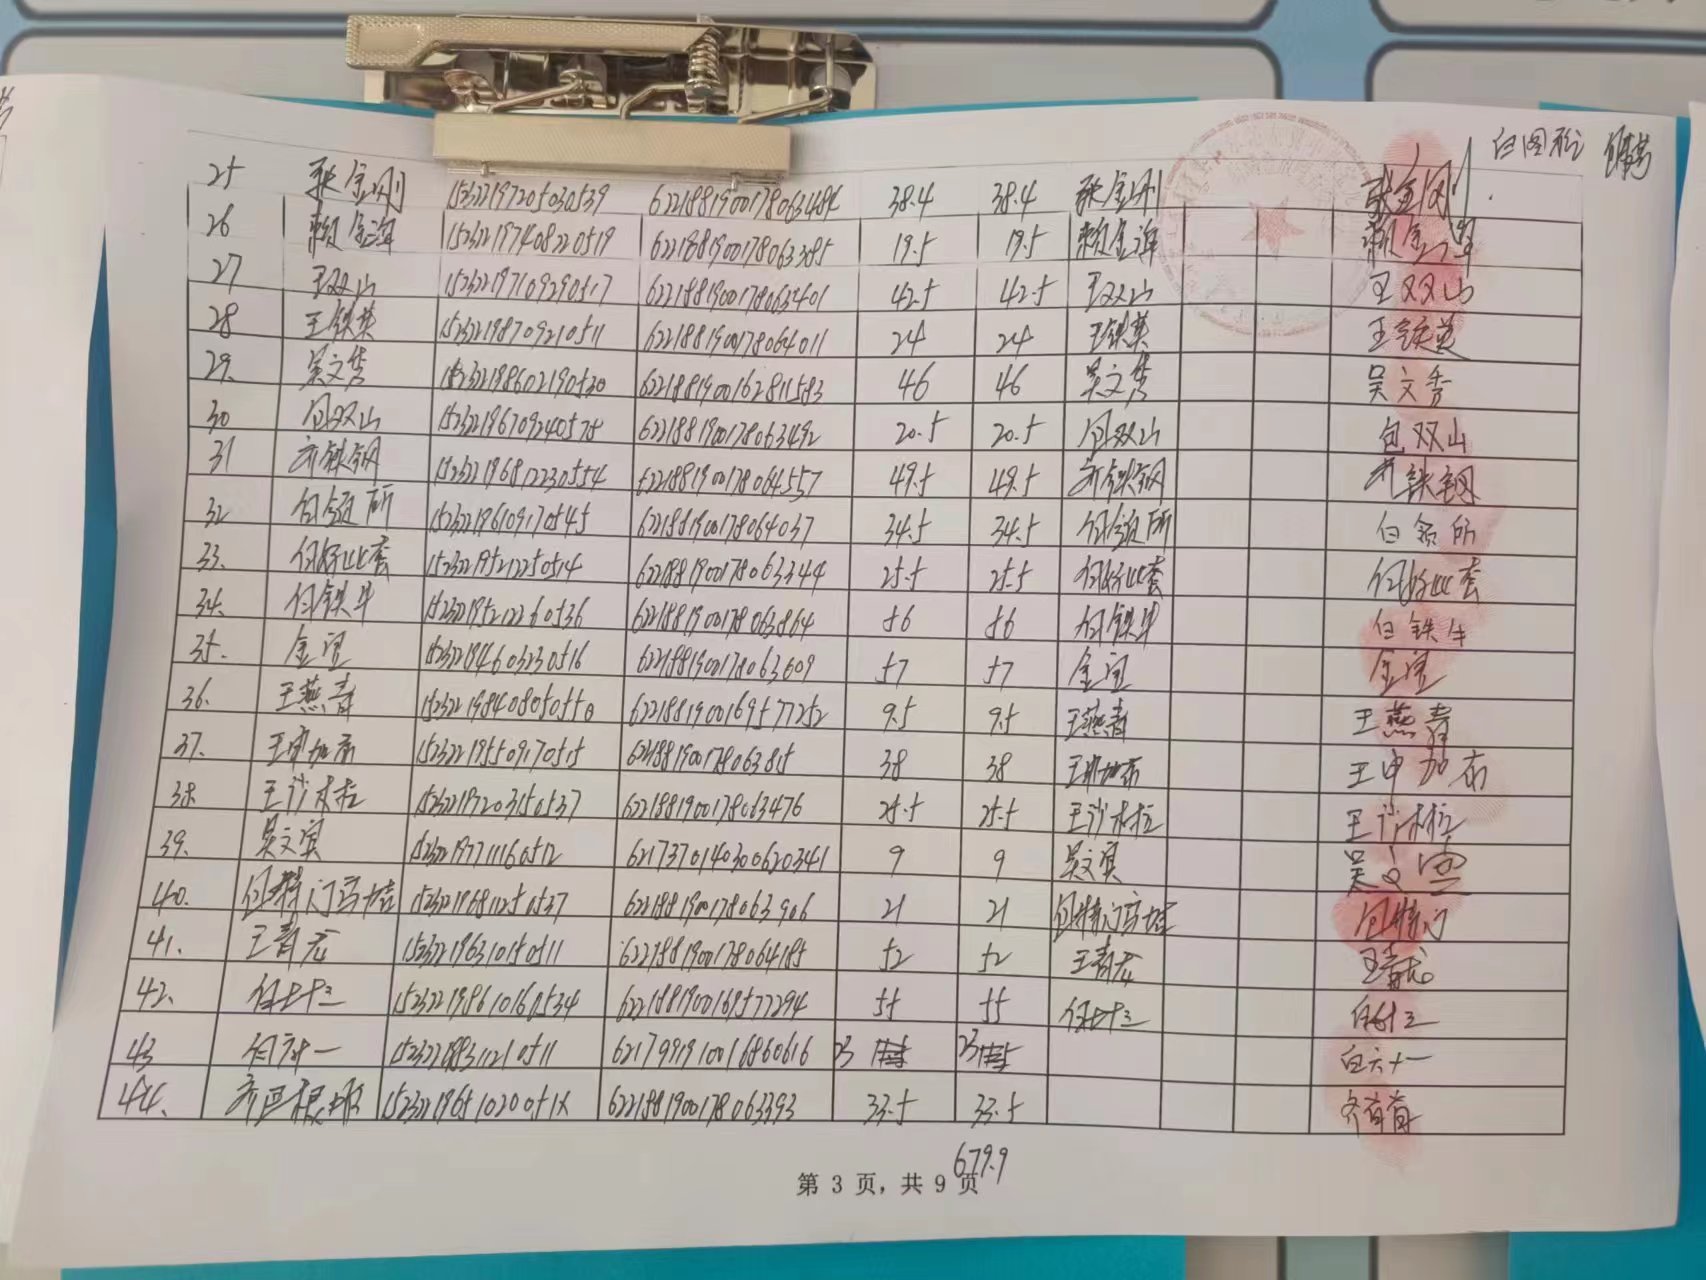 白图桩
25 张金刚 152322197205030539 6221881900178063484 38.4 38.4 张金刚 张金刚
26 赖金海 152322197408220519 6221881900178063385 19.5 19.5 赖金海 赖金海
27 王双山 152322197109290517 6221881900178063401 42.5 42.5 王双山 王双山
28 王铁英 152322198709210511 6221881900178064011 24 24 王铁英 王铁英
29. 吴文秀 152322198602190530 6221881900162811583 46 46 吴文秀 吴文秀
30 包双山 152322196709240578 6221881900178063492 20.5 20.5 包双山 包双山
31 齐铁钢 152322196812230554 6221881900178064557 49.5 49.5 齐铁钢 齐铁钢
32 152322196109170545 6221881900178064037 34.5 34.5
33. 152322195212250514 6221881900178063344 25.5 25.5
34. 白铁牛 152322195212260536 6221881900178063864 56 56 白铁牛 白铁牛
35. 金宝 152322194603230516 6221881900178063609 57 57 金宝 金宝
36. 王燕青 6221881900169577252 9.5 9.5 王燕青 王燕青
37. 王申加布 152322195509170515 622188190017806385 38 38 王申加布 王申加布
38. 王沙木拉 152322197203150537 6221881900178063476 25.5 25.5 王沙木拉 王沙木拉
39. 吴文宾 152322197711160512 6217370140300620341 9 9 吴文宾 吴文宾
40. 包特门乌塔 152322196811250537 6221881900178063906 21 21 包特门乌塔 包特门
41. 王青龙 152322196310150511 6221881900178064185 52 52 王青龙 王青龙
42. 白七十三 152322198610160534 6221881900169577294 55 55 白七十三 白七十三
43 白六十一 152322198311210511 6217991910016860616 23 23 白六十一
44. 15232219651020051X 6221881900178063393 33.5 33.5
679.9
第 3 页，共 9 页